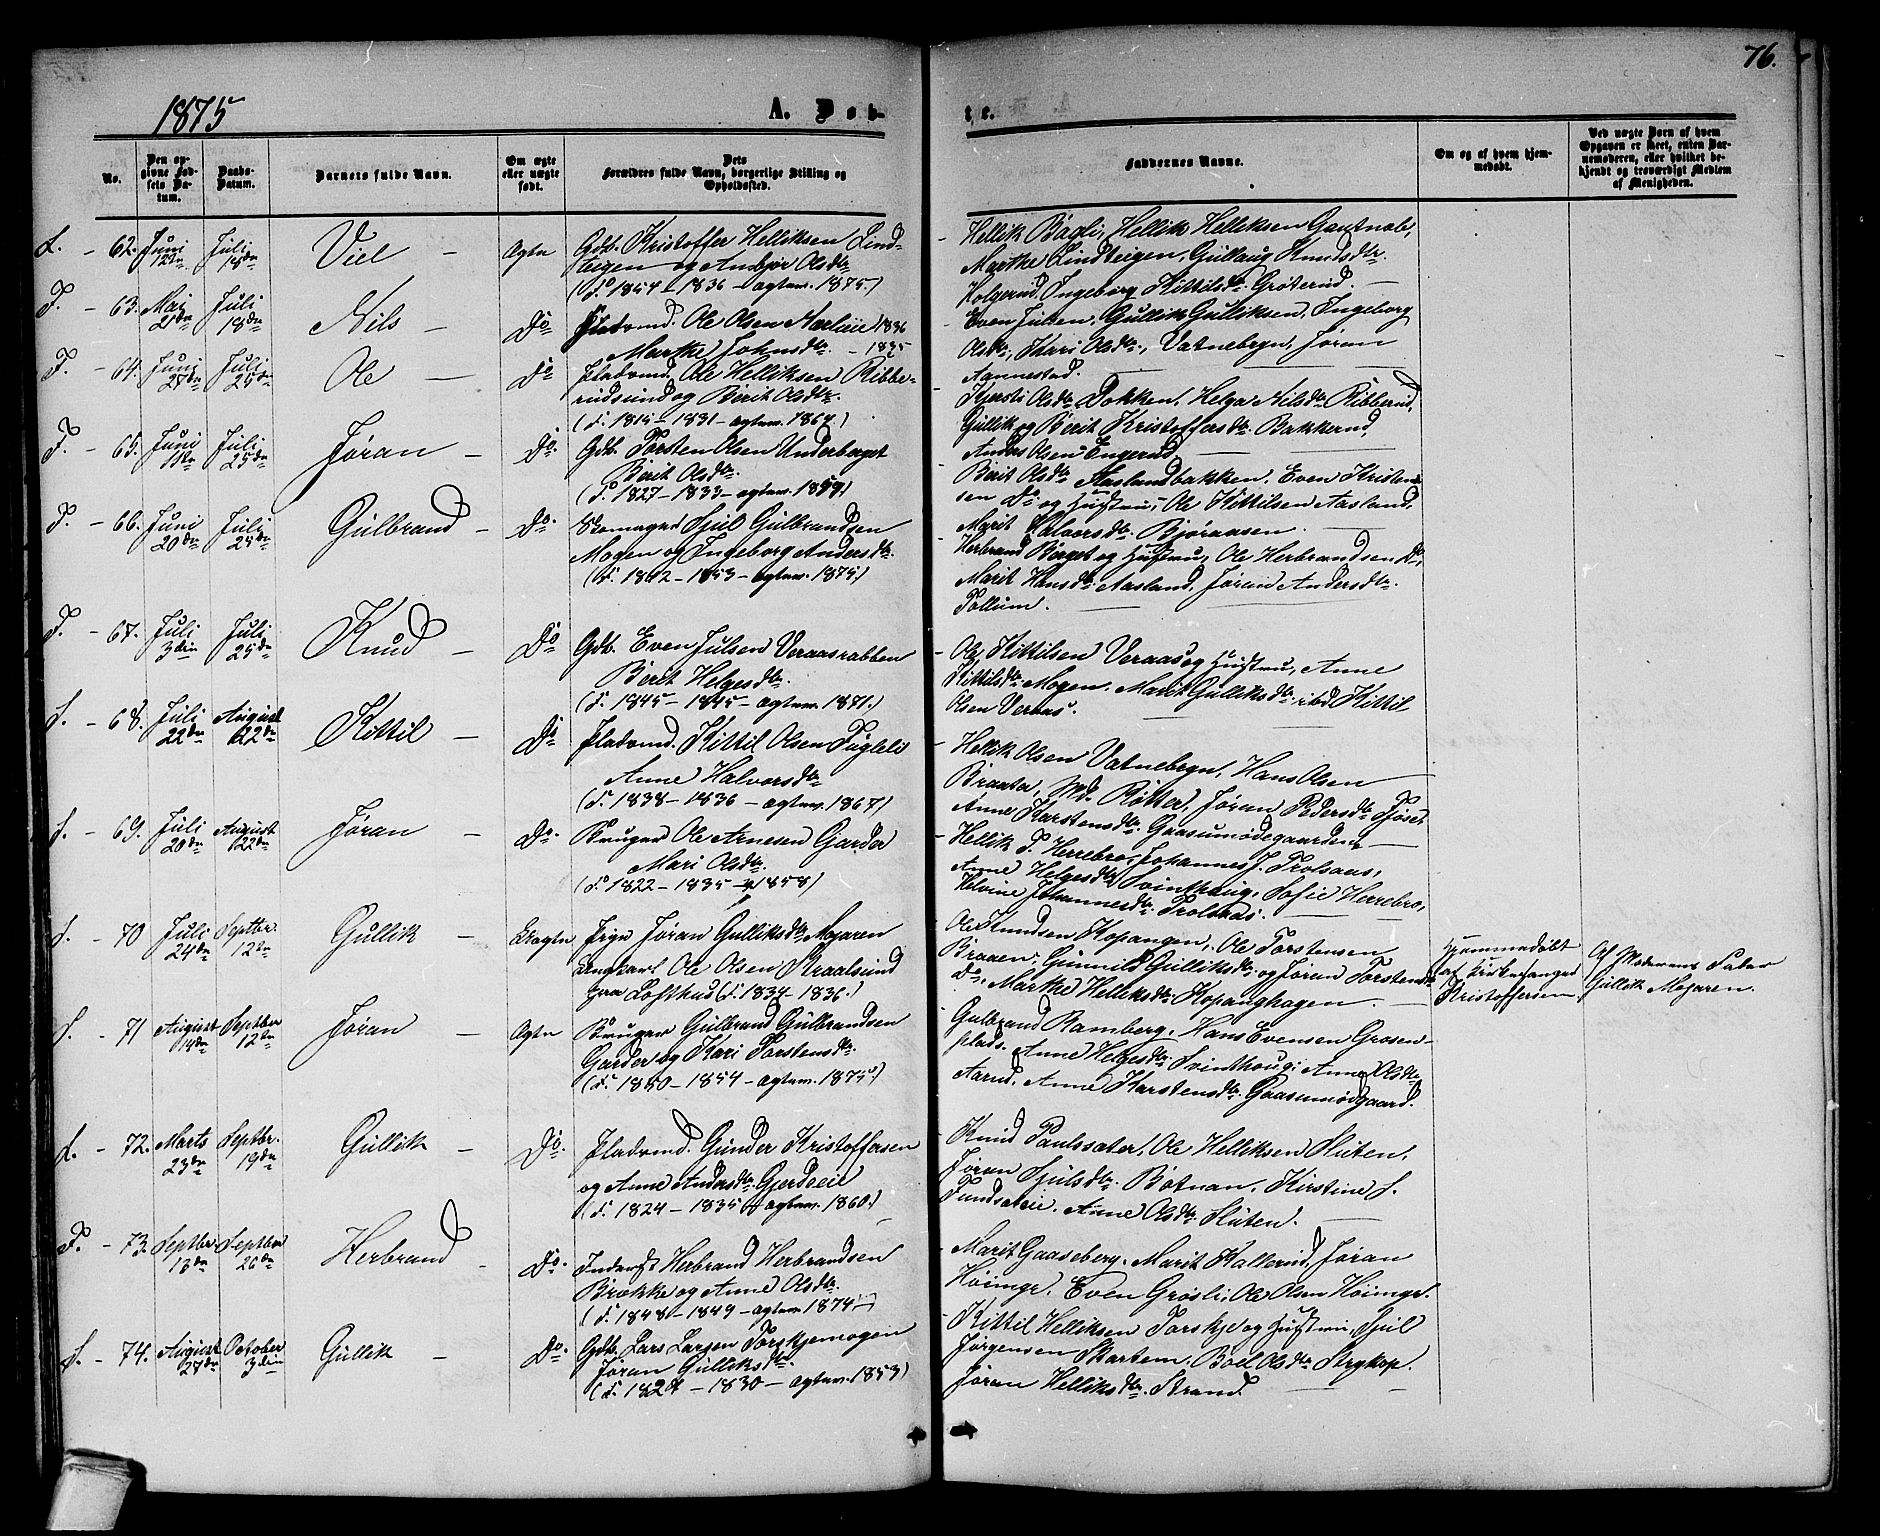 76.
1875
A. Døb-
te.
No.
Den op-
givne Fød-
sels Da-
tum.
Daabs-
Datum.
Barnets fulde Navn.
Om ægte
eller uægte
født.
Dets
Forældres fulde Navn, borgerlige Stilling og
Opholdssted.
Faddernes Navne.
Om og af hvem hjem-
medøbt.
Ved uægte Børn af hvem
Opgaven er skeet, enten Bar-
nemoderen, eller hvilket be-
kjendt og troværdigt Medlem
af Menigheden.
62. Juni 12te Juli 18de Viel — Ægte
Gdb. Kristoffer Helliksen Lind-
teigen og Ambjør Olsdtr.
(f. 1854 - 1836 - ægtev. 1875.)
Hellik Bøgli, Hellik Helliksen
Marthe Lindteigen, Gullaug Knudsdtr.
Holgerud, Ingeborg Kittilsdtr. Grøterud. —
F. - 63. Mai 21de Juli 18de Nils — Do
Pladsmd. Ole Olsen 1836
Marthe Johnsdtr. - 1835
Even Julsen, Gullik Gulliksen, Ingeborg
Olsdtr, Kari Olsdtr., Vatnebryn, Jøran
Aannestad.
F. - 64. Juni 27de Juli 25de Ole — Do
Pladsmd. Ole Helliksen Ribbe-
rudsund og Berit Olsdtr.
(f. 1815 - 1831 - ægtev. 1864)
Kjersti Olsdtr. Dokken, Helga Nilsdtr. Ribberud,
Gullik og Berit Kristoffersdtr. Bakkerud,
Anders Olsen Engerud,
F. - 65. Juni 11te Juli 25de Jøran — Do.
Gdb. Torsten Olsen Underberget
Berit Olsdtr.
(f. 1827 - 1833 - ægtev. 1859)
Berit Olsdtr. Aaslandbakken, Even Kristen-
sen Do og Hustru, Ole Kittilsen Aasland,
Marit Halvorsdtr. Bjøraasen
F. - 66. Juni 20de Juli 25de Gulbrand — Do.
Skomager Sjul Gulbrandsen
Mogen og Ingeborg Andersdtr.
(f. 1842 - 1853 - ægtev. 1875.)
Herbrand Berget og Hustru, Ole Herbrandsen Do,
Marit Hansdtr. Aasland, Jøran Andersdtr.
Tollum.
F. - 67. Juli 3die Juli 25de Knud — Do
Gdb. Even Julsen Veraasrabben
Berit Helgesdtr.
(f. 1845 - 1845 - ægtev. 1871.)
Ole Kittilsen Veraas og Hustru, Anne
Kittilsdtr. Mogen, Marit Gulliksdtr. ibd Kittil
Olsen Veraas.
68. Juli 22de August 22de Kittil — Do
Pladsmd. Kittil Olsen Fugleli
Anne Halvorsdtr.
(f. 1838 - 1836 - ægtev. 1867)
Hellik Olsen Vatnebryn, Hans Olsen
Braata, Md. Røtter, Jøran Pedersdtr. Fjøse,
Anne Karstensdtr. Gaasumødegaarden —
69. Juli 20de August 22de Jøran — Do.
Bruger Ole Arnesen Garder
Mari Olsdtr.
(f. 1822 - 1835 - 1858)
Hellik T. Herrebro, Johannes J. Trolsaas,
Anne Helgesdtr. Svinthaug, Sofie Herrebro,
Helvine Johannesdtr. Trolsaas.
70 Juli 24de Septbr. 12te Gullik — Uægte
Pige Jøran Gulliksdtr. Mojaren
Ungkarl Ole Olsen Kraalsund
paa Lofthus (f. 1834 - 1836.)
Ole Knudsen Kopangen, Ole Torstensen
Braaen, Gunnild Gulliksdtr. og Jøran Torstensdtr
Do, Marthe Helliksdtr. Kopanghagen.
Hjemmedøbt
af Kirkesanger
Kristoffersen
Af Moderens Fader
Gullik Mojaren.
71 August 14de Septbr 12te Jøran — Ægte
Bruger Gulbrand Gulbrandsen
Garder og Kari Torstensdtr.
(f. 1850 - 1854 - ægtev. 1875.)
Gulbrand Ramberg, Hans Evensen Grosen-
plads, Anne Helgesdtr. Svinthoug, Anne Olsdtr.
Aarud, Anne Karstensdtr. Gaasumødgaard.
72. Marts 23de Septbr. 19de Gullik — Do.
Pladsmd. Gunder Kristoffersen
og Anne Andersdtr. Gjerdeeie
(f. 1824 - 1835 - ægtev. 1860.)
Knud Paulssater, Ole Helliksen Sluten,
Jøran Sjulsdtr. Botnan, Kirstine S.
Tundsateie, Anne Olsdtr. Sluten.
F. - 73. Septbr 13de Septbr 26de Herbrand — Do.
Inderst Herbrand Herbrandsen
Brække og Anne Olsdtr.
(f. 1848 - 1849 - ægtev. 1874 -)
Marit Gaaseberg, Marit Kallerud, Jøran
Høimyr, Even Grøsli, Ole Olsen Høimyr.
74. August 27de October 3die Gullik — Do.
Gdb. Lars Larsen Torskjemogen
Jøran Gulliksdtr.
(f. 1828 - 1830 - ægtev. 1853)
Kittil Helliksen Torskje og Hustru, Sjul
Jørgensen Skartem, Boel Olsdtr. Strykop,
Jøran Helliksdtr. Strand.